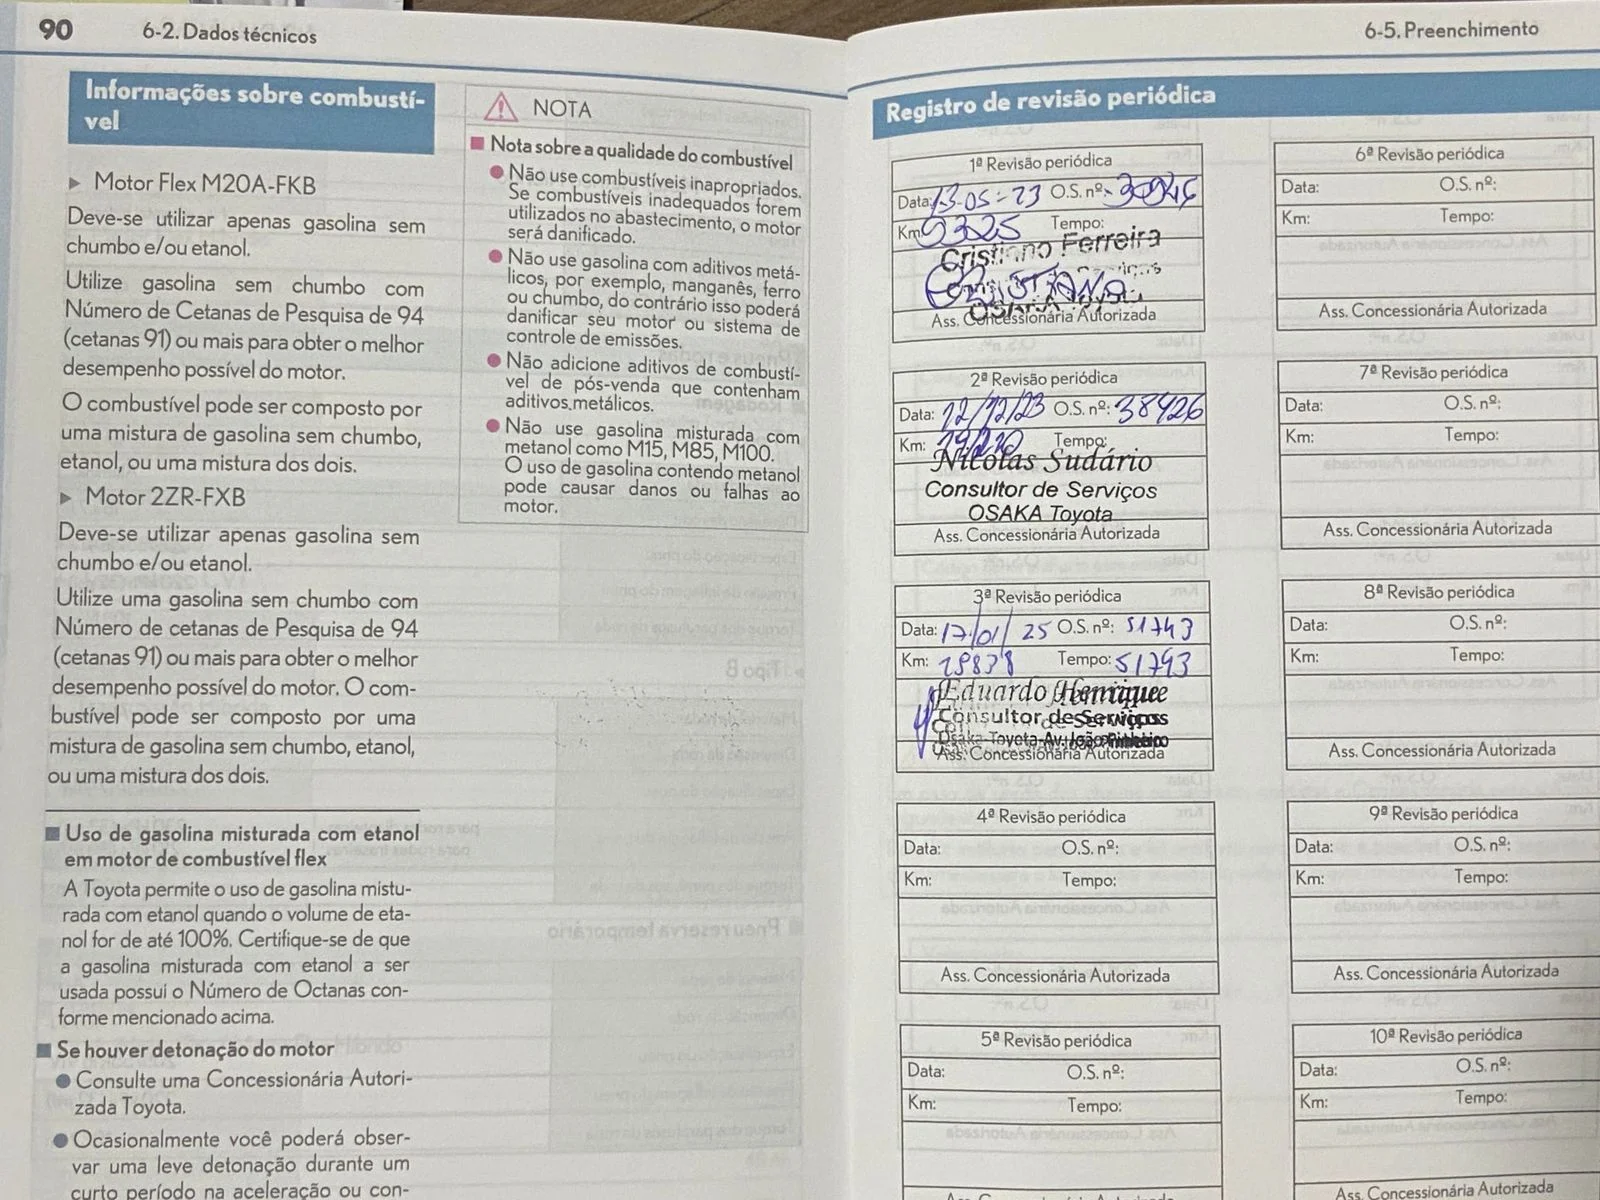 90
6-2. Dados técnicos
Informações sobre combustí-
vel
Motor Flex M20A-FKB
Deve-se utilizar apenas gasolina sem
chumbo e/ou etanol.
Utilize gasolina sem chumbo com
Número de Cetanas de Pesquisa de 94
(cetanas 91) ou mais para obter o melhor
desempenho possível do motor.
O combustível pode ser composto por
uma mistura de gasolina sem chumbo,
etanol, ou uma mistura dos dois.
Motor 2ZR-FXB
Deve-se utilizar apenas gasolina sem
chumbo e/ou etanol.
Utilize uma gasolina sem chumbo com
Número de cetanas de Pesquisa de 94
(cetanas 91) ou mais para obter o melhor
desempenho possível do motor. O com-
bustível pode ser composto por uma
mistura de gasolina sem chumbo, etanol,
ou uma mistura dos dois.
Uso de gasolina misturada com etanol
em motor de combustível flex
A Toyota permite o uso de gasolina mistu-
rada com etanol quando o volume de eta-
nol for de até 100%. Certifique-se de que
a gasolina misturada com etanol a ser
usada possui o Número de Octanas con-
forme mencionado acima.
Se houver detonação do motor
Consulte uma Concessionária Autori-
zada Toyota.
Ocasionalmente você poderá obser-
var uma leve detonação durante um
curto período na aceleração ou con-
NOTA
Nota sobre a qualidade do combustível
Não use combustíveis inapropriados.
Se combustíveis inadequados forem
utilizados no abastecimento, o motor
será danificado.
Não use gasolina com aditivos metá-
licos, por exemplo, manganês, ferro
ou chumbo, do contrário isso poderá
danificar seu motor ou sistema de
controle de emissões.
Não adicione aditivos de combustí-
vel de pós-venda que contenham
aditivos metálicos.
Não use gasolina misturada com
metanol como M15, M85, M100.
O uso de gasolina contendo metanol
pode causar danos ou falhas ao
motor.
6-5. Preenchimento
Registro de revisão periódica
1ª Revisão periódica
Data: 13-05-23 O.S. nº:
Km: Tempo:
Cristiano Ferreira
Ass. Concessionária Autorizada
2ª Revisão periódica
Data: 12/12/23 O.S. nº: 38426
Km: Tempo:
Nicolas Sudário
Consultor de Serviços
OSAKA Toyota
Ass. Concessionária Autorizada
3ª Revisão periódica
Data: 17/01/25 O.S. nº: 51743
Km: Tempo: 51793
Eduardo Henrique
Consultor de Serviços
Osaka Toyota-Av. João Pinheiro
Ass. Concessionária Autorizada
4ª Revisão periódica
Data: O.S. nº:
Km: Tempo:
Ass. Concessionária Autorizada
5ª Revisão periódica
Data: O.S. nº:
Km: Tempo:
6ª Revisão periódica
Data: O.S. nº:
Km: Tempo:
Ass. Concessionária Autorizada
7ª Revisão periódica
Data: O.S. nº:
Km: Tempo:
Ass. Concessionária Autorizada
8ª Revisão periódica
Data: O.S. nº:
Km: Tempo:
Ass. Concessionária Autorizada
9ª Revisão periódica
Data: O.S. nº:
Km: Tempo:
Ass. Concessionária Autorizada
10ª Revisão periódica
Data: O.S. nº:
Km: Tempo:
Ass. Concessionária Autorizada